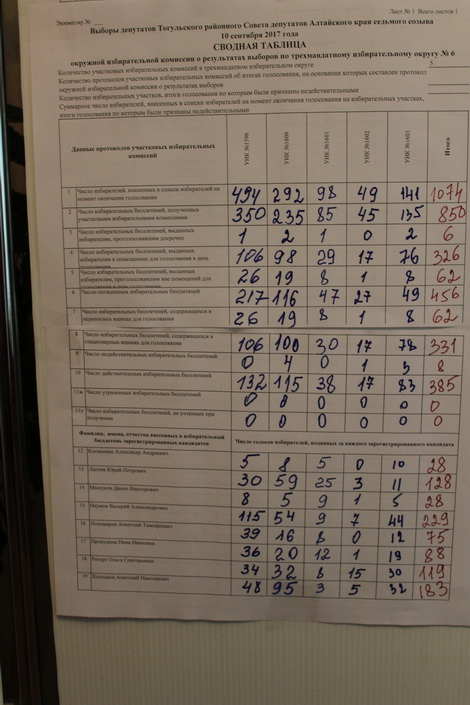 Лист № 1 Всего листов 1
Экземпляр №
Выборы депутатов Тогульского районного Совета депутатов Алтайского края седьмого созыва
10 сентября 2017 года
СВОДНАЯ ТАБЛИЦА
окружной избирательной комиссии о результатах выборов по трехмандатному избирательному округу № 6
Количество участковых избирательных комиссий в трехмандатном избирательном округе 5
Количество протоколов участковых избирательных комиссий об итогах голосования, на основании которых составлен протокол
окружной избирательной комиссии о результатах выборов
Количество избирательных участков, итоги голосования по которым были признаны недействительными
Суммарное число избирателей, внесенных в списки избирателей на момент окончания голосования на избирательных участках,
итоги голосования по которым были признаны недействительными
Данные протоколов участковых избирательных комиссий УИК №1596 УИК №1600 УИК №1601 УИК №1602 УИК №1603 Итого
1 Число избирателей, внесенных в список избирателей на
момент окончания голосования 494 292 98 49 141 1074
2 Число избирательных бюллетеней, полученных
участковыми избирательными комиссиями 350 235 85 45 135 850
3 Число избирательных бюллетеней, выданных
избирателям, проголосовавшим досрочно 1 2 1 0 2 6
4 Число избирательных бюллетеней, выданных
избирателям в помещениях для голосования в день
голосования 106 98 29 17 76 326
5 Число избирательных бюллетеней, выданных
избирателям, проголосовавшим вне помещений для
голосования в день голосования 26 19 8 1 8 62
6 Число погашенных избирательных бюллетеней 217 116 47 27 49 456
7 Число избирательных бюллетеней, содержащихся в
переносных ящиках для голосования 26 19 8 1 8 62
8 Число избирательных бюллетеней, содержащихся в
стационарных ящиках для голосования 106 100 30 17 78 331
9 Число недействительных избирательных бюллетеней 0 4 0 1 3 8
10 Число действительных избирательных бюллетеней 132 115 38 17 83 385
11ж Число утраченных избирательных бюллетеней 0 0 0 0 0 0
11з Число избирательных бюллетеней, не учтенных при
получении 0 0 0 0 0 0
Фамилии, имена, отчества внесенных в избирательный
бюллетень зарегистрированных кандидатов Число голосов избирателей, поданных за каждого зарегистрированного кандидата
12 Александр Андреевич 5 8 5 0 10 28
13 Юрий Петрович 30 59 25 3 11 128
14 Данил Викторович 8 5 9 1 5 28
15 Наумов Валерий Александрович 115 54 9 7 44 229
16 Пономарев Анатолий Тимофеевич 39 16 8 0 12 75
17 Нина Ивановна 36 20 12 1 19 88
18 Ольга Григорьевна 34 32 8 15 30 119
19 Анатолий Николаевич 48 95 3 5 32 183